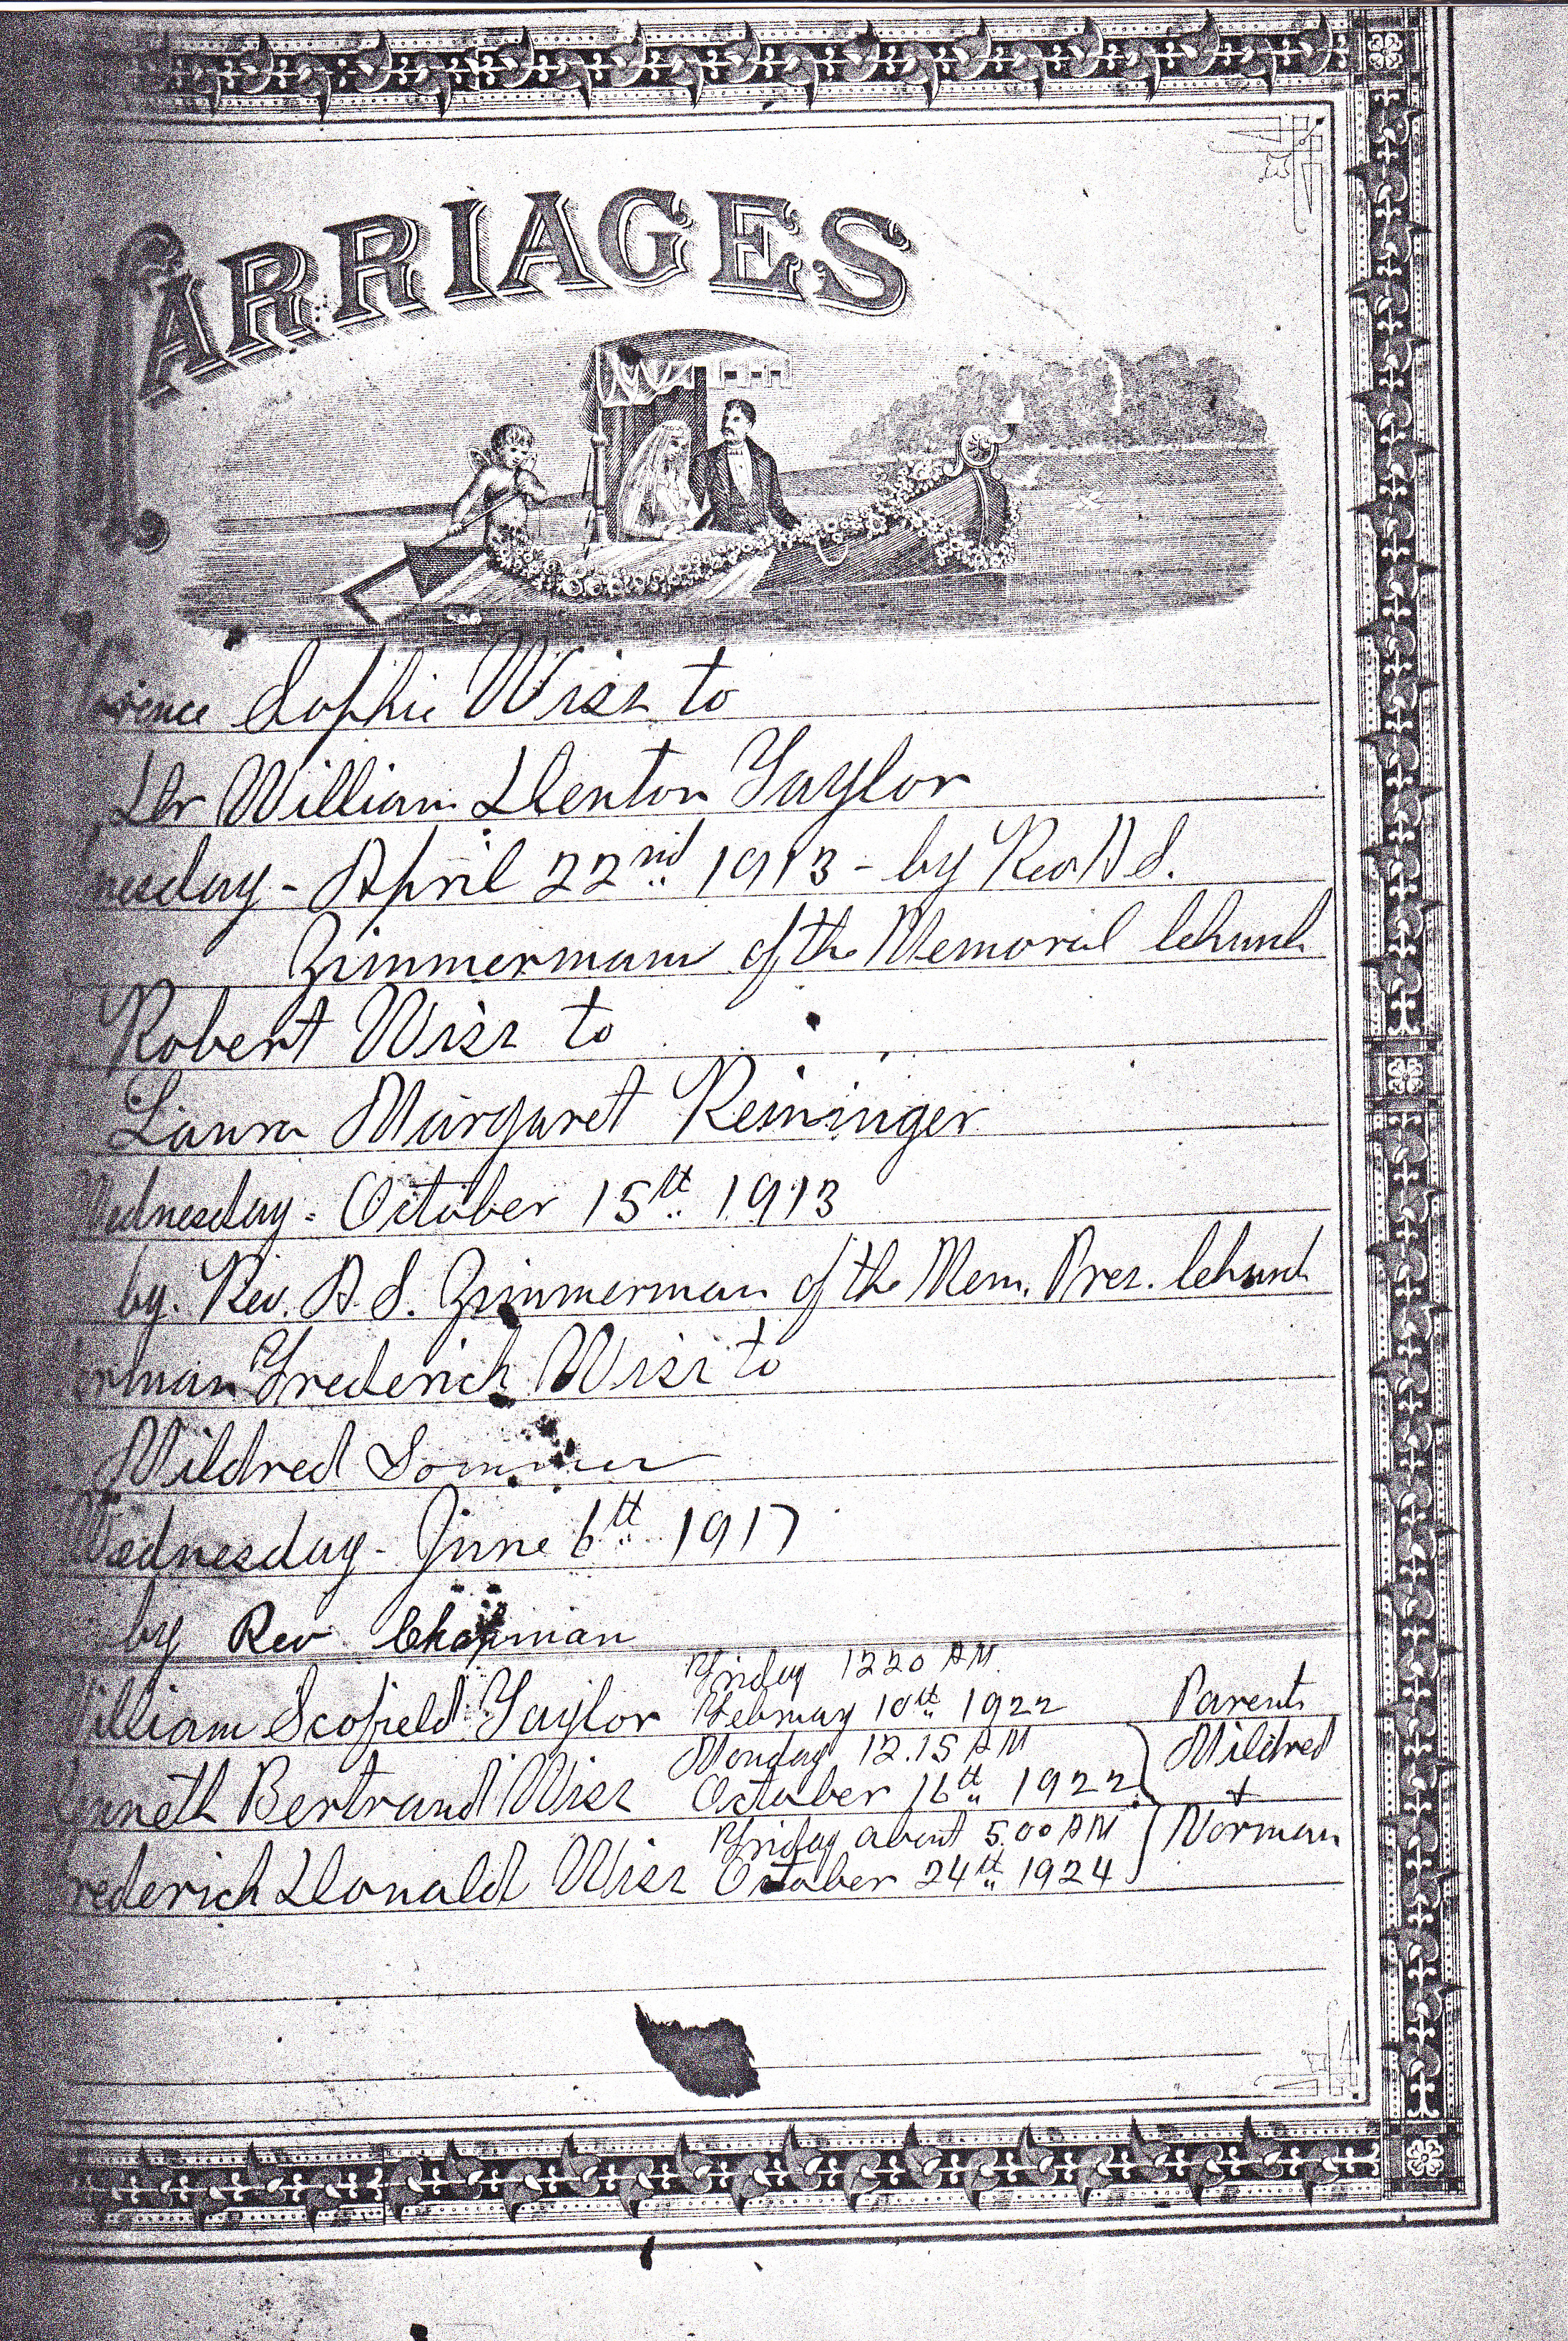 MARRIAGES
Florence Sophie Wiss to
Dr William Denton Taylor
nesday - April 22nd 1913 - by Rev A S.
Zimmermann of the Memorial Church
Robert Wiss to
Laura Margaret Reininger
Wednesday - October 15th 1913
by. Rev. A. S. Zimmerman of the Mem. Pres. Church
Norman Frederich Wiss to
Mildred Sommer
Wednesday - June 6th 1917
by Rev Chapman
William Scofield Taylor Friday 12 20 AM. February 10th 1922
Parents
Kenneth Bertrand Wiss Monday 12.15 AM October 16th 1922
Mildred
+
Norman
Frederich Donald Wiss Friday about 5.00 AM October 24th 1924